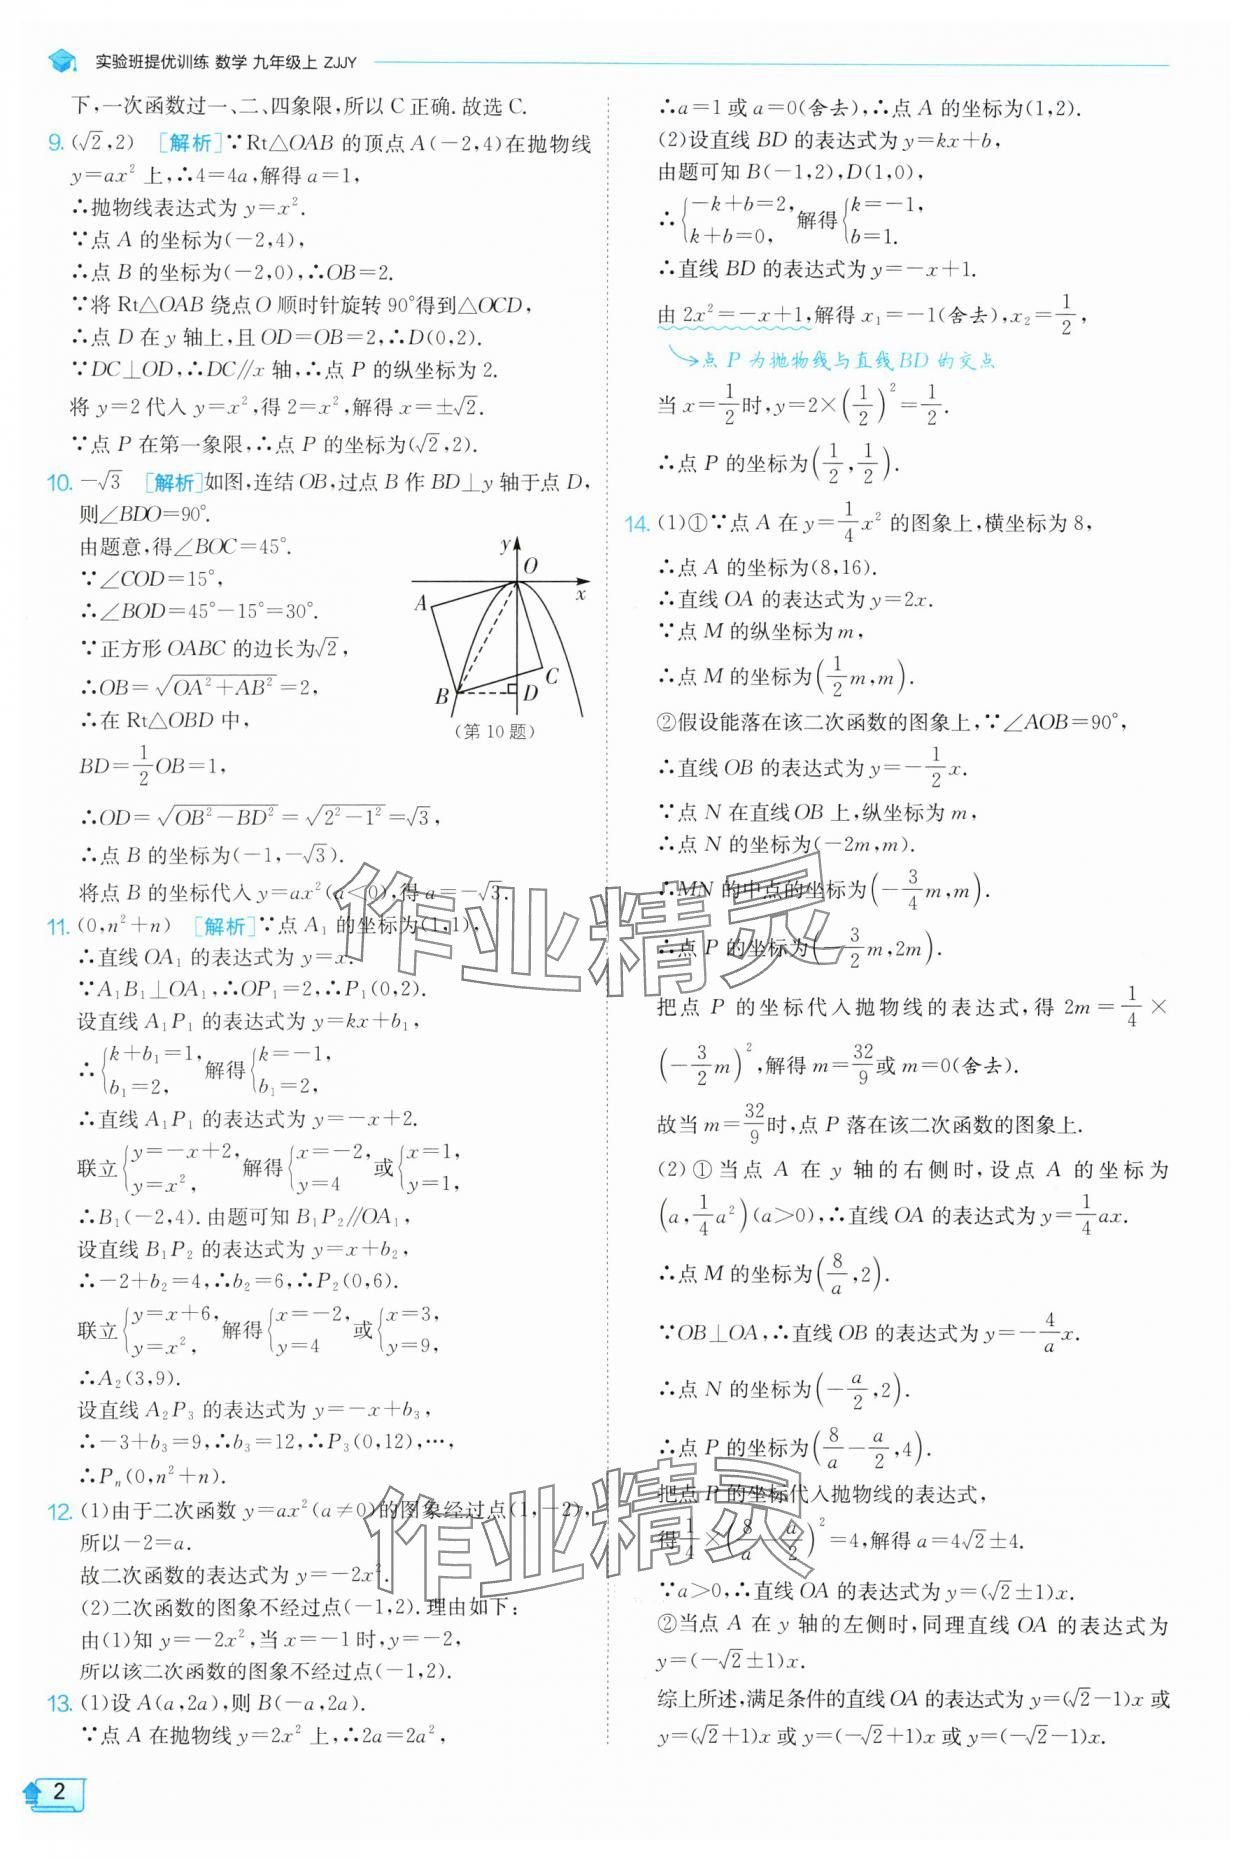 实验班提优训练 数学 九年级上 ZJJY
下,一次函数过一、二、四象限,所以 C 正确.故选 C.
9. (√2,2) [解析]∵Rt△OAB 的顶点 A(-2,4)在抛物线
y=ax² 上,∴4=4a,解得 a=1,
∴抛物线表达式为 y=x².
∵点 A 的坐标为(-2,4),
∴点 B 的坐标为(-2,0),∴OB=2.
∵将 Rt△OAB 绕点 O 顺时针旋转 90°得到△OCD,
∴点 D 在 y 轴上,且 OD=OB=2,∴D(0,2).
∵DC⊥OD,∴DC∥x 轴,∴点 P 的纵坐标为 2.
将 y=2 代入 y=x²,得 2=x²,解得 x=±√2.
∵点 P 在第一象限,∴点 P 的坐标为(√2,2).
10. -√3 [解析]如图,连结 OB,过点 B 作 BD⊥y 轴于点 D,
则∠BDO=90°.
由题意,得∠BOC=45°.
∵∠COD=15°,
∴∠BOD=45°-15°=30°.
∵正方形 OABC 的边长为√2,
∴OB=√(OA²+AB²)=2,
∴在 Rt△OBD 中,
BD=1/2 OB=1,
∴OD=√(OB²-BD²)=√(2²-1²)=√3,
∴点 B 的坐标为(-1,-√3).
将点 B 的坐标代入 y=ax²(a<0),得 a=-√3.
y
O
x
A
C
B
D
(第 10 题)
11. (0,n²+n) [解析]∵点 A₁ 的坐标为(1,1),
∴直线 OA₁ 的表达式为 y=x.
∵A₁B₁⊥OA₁,∴OP₁=2,∴P₁(0,2).
设直线 A₁P₁ 的表达式为 y=kx+b₁,
∴{k+b₁=1, b₁=2, 解得{k=-1, b₁=2,
∴直线 A₁P₁ 的表达式为 y=-x+2.
联立{y=-x+2, y=x², 解得{x=-2, y=4 或{x=1, y=1,
∴B₁(-2,4).由题可知 B₁P₂∥OA₁,
设直线 B₁P₂ 的表达式为 y=x+b₂,
∴-2+b₂=4,∴b₂=6,∴P₂(0,6).
联立{y=x+6, y=x², 解得{x=-2, y=4 或{x=3, y=9,
∴A₂(3,9).
设直线 A₂P₃ 的表达式为 y=-x+b₃,
∴-3+b₃=9,∴b₃=12,∴P₃(0,12),…,
∴Pₙ(0,n²+n).
12. (1)由于二次函数 y=ax²(a≠0)的图象经过点(1,-2),
所以-2=a.
故二次函数的表达式为 y=-2x².
(2)二次函数的图象不经过点(-1,2).理由如下:
由(1)知 y=-2x²,当 x=-1 时,y=-2,
所以该二次函数的图象不经过点(-1,2).
13. (1)设 A(a,2a),则 B(-a,2a).
∵点 A 在抛物线 y=2x² 上,∴2a=2a²,
∴a=1 或 a=0(舍去),∴点 A 的坐标为(1,2).
(2)设直线 BD 的表达式为 y=kx+b,
由题可知 B(-1,2),D(1,0),
∴{-k+b=2, k+b=0, 解得{k=-1, b=1.
∴直线 BD 的表达式为 y=-x+1.
由 2x²=-x+1,解得 x₁=-1(舍去),x₂=1/2,
点 P 为抛物线与直线 BD 的交点
当 x=1/2 时,y=2×(1/2)²=1/2.
∴点 P 的坐标为(1/2,1/2).
14. (1)①∵点 A 在 y=1/4 x² 的图象上,横坐标为 8,
∴点 A 的坐标为(8,16).
∴直线 OA 的表达式为 y=2x.
∵点 M 的纵坐标为 m,
∴点 M 的坐标为(1/2 m,m).
②假设能落在该二次函数的图象上,∵∠AOB=90°,
∴直线 OB 的表达式为 y=-1/2 x.
∵点 N 在直线 OB 上,纵坐标为 m,
∴点 N 的坐标为(-2m,m).
∴MN 的中点的坐标为(-3/4 m,m).
∴点 P 的坐标为(-3/2 m,2m).
把点 P 的坐标代入抛物线的表达式,得 2m=1/4×
(-3/2 m)²,解得 m=32/9 或 m=0(舍去).
故当 m=32/9 时,点 P 落在该二次函数的图象上.
(2)①当点 A 在 y 轴的右侧时,设点 A 的坐标为
(a,1/4 a²)(a>0),∴直线 OA 的表达式为 y=1/4 ax.
∴点 M 的坐标为(8/a,2).
∵OB⊥OA,∴直线 OB 的表达式为 y=-4/a x.
∴点 N 的坐标为(-a/2,2).
∴点 P 的坐标为(8/a-a/2,4).
把点 P 的坐标代入抛物线的表达式,
得 1/4×(8/a-a/2)²=4,解得 a=4√2±4.
∵a>0,∴直线 OA 的表达式为 y=(√2±1)x.
②当点 A 在 y 轴的左侧时,同理直线 OA 的表达式为
y=(-√2±1)x.
综上所述,满足条件的直线 OA 的表达式为 y=(√2-1)x 或
y=(√2+1)x 或 y=(-√2+1)x 或 y=(-√2-1)x.
作业精灵
作业精灵
2